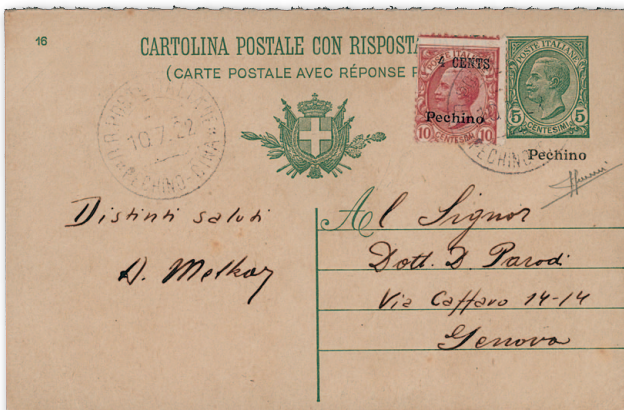 16
CARTOLINA POSTALE CON RISPOSTA
(CARTE POSTALE AVEC RÉPONSE P
4 CENTS
Pechino
10 CENTESIMI 10
POSTE ITALIANE
5 CENTESIMI 5
Pechino
POSTE
10.7.22
PECHINO-CINA
PECHINO
Distinti saluti
Al Signor
Dott. D. Parodi
Via Caffaro 14-14
Genova